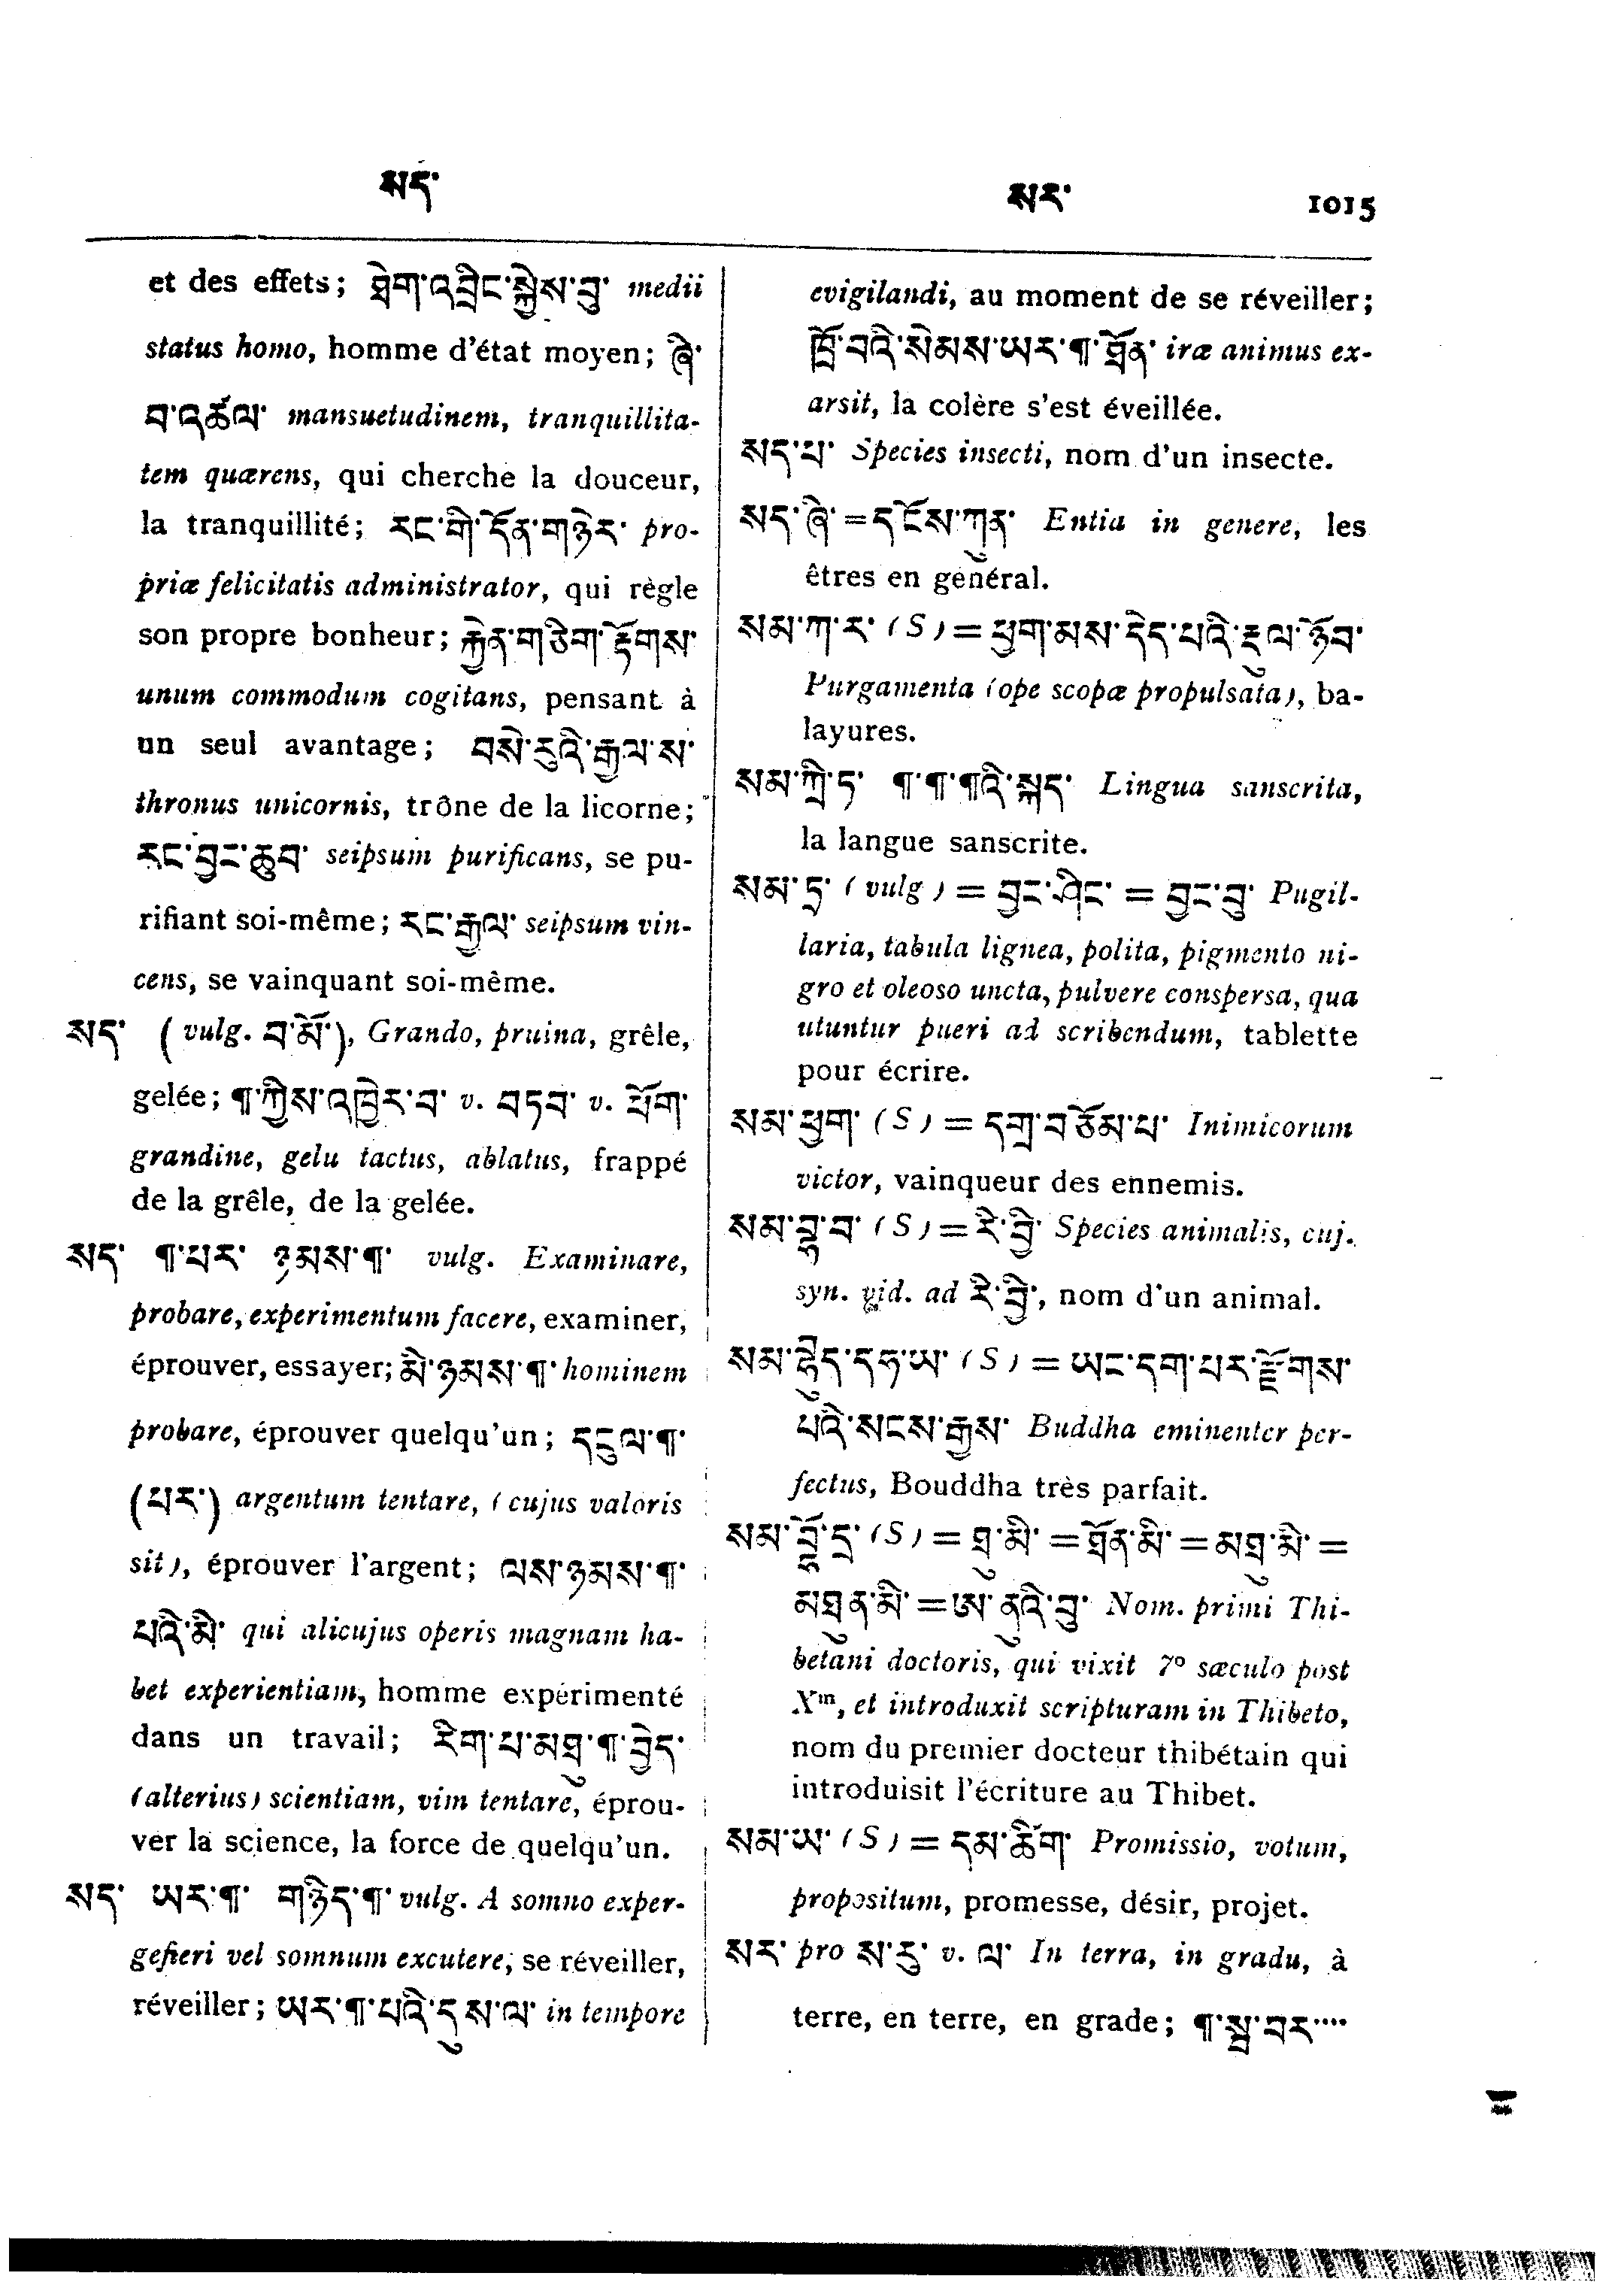 སད་
སར་ 1015
et des effets; ཐེག་འབྲིང་སྐྱེས་བུ་ medii
status homo, homme d'état moyen; ཞི་
བ་འཚལ་ mansuetudinem, tranquillita-
tem quærens, qui cherche la douceur,
la tranquillité; རང་གི་དོན་གཉེར་ pro-
priæ felicitatis administrator, qui règle
son propre bonheur; རྐྱེན་གཅིག་རྟོགས་
unum commodum cogitans, pensant à
un seul avantage; བསེ་རུའི་རྒྱལ་ས་
thronus unicornis, trône de la licorne;
རང་བྱང་ཆུབ་ seipsum purificans, se pu-
rifiant soi-même; རང་རྒྱལ་ seipsum vin-
cens, se vainquant soi-même.
སད་ (vulg. བ་མོ་), Grando, pruina, grêle,
gelée; ༌།་ཀྱིས་འཁྱེར་བ་ v. བཏབ་ v. ཕོག་
grandine, gelu tactus, ablatus, frappé
de la grêle, de la gelée.
སད་ ¶་པར་ ཉམས་¶་ vulg. Examinare,
probare, experimentum facere, examiner,
éprouver, essayer; མི་ཉམས་¶་ hominem
probare, éprouver quelqu'un; དངུལ་¶་
(པར་) argentum tentare, (cujus valoris
sit), éprouver l'argent; ལས་ཉམས་¶་
པའི་མི་ qui alicujus operis magnam ha-
bet experientiam, homme expérimenté
dans un travail; རིག་པ་མཐུ་¶་བྱེད་
(alterius) scientiam, vim tentare, éprou-
ver la science, la force de quelqu'un.
སད་ ཡར་¶་ གཉིད་¶་ vulg. A somno exper-
gefieri vel somnum excutere, se réveiller,
réveiller; ཡར་¶་པའི་དུས་ལ་ in tempore
evigilandi, au moment de se réveiller;
ཁྲོ་བའི་སེམས་ཡར་¶་ཐོན་ iræ animus ex-
arsit, la colère s'est éveillée.
སད་པ་ Species insecti, nom d'un insecte.
སད་ཞི་ = དངོས་ཀུན་ Entia in genere, les
êtres en général.
སམ་ཀ་ར་ (S) = ཕྱག་མས་དེད་པའི་རྡུལ་ཉོབ་
Purgamenta (ope scopæ propulsata), ba-
layures.
སམ་ཀྲི་ཏ་ ¶་¶་¶འི་སྐད་ Lingua sanscrita,
la langue sanscrite.
སམ་ཏྲ་ (vulg) = བྱང་ཤིང་ = བྱང་བུ་ Pugil-
laria, tabula lignea, polita, pigmento ni-
gro et oleoso uncta, pulvere conspersa, qua
utuntur pueri ad scribendum, tablette
pour écrire.
སམ་ཕྱག་ (S) = དགྲ་བཅོམ་པ་ Inimicorum
victor, vainqueur des ennemis.
སམ་བྷ་བ་ (S) = རི་བྱི་ Species animalis, cuj.
syn. vid. ad རི་བྱི་, nom d'un animal.
སམ་བྷེད་དཧ་ཡ་ (S) = ཡང་དག་པར་རྫོགས་
པའི་སངས་རྒྱས་ Buddha eminenter per-
fectus, Bouddha très parfait.
སམ་བྷོ་ཏྲ་ (S) = ཐུ་མི་ = ཐོན་མི་ = མཐུ་མི་ =
མཐུན་མི་ = ཨ་ནུའི་བུ་ Nom. primi Thi-
betani doctoris, qui vixit 7º sæculo post
Xᵐ, et introduxit scripturam in Thibeto,
nom du premier docteur thibétain qui
introduisit l'écriture au Thibet.
སམ་ཡ་ (S) = དམ་ཚིག་ Promissio, votum,
propositum, promesse, désir, projet.
སར་ pro ས་རུ་ v. ལ་ In terra, in gradu, à
terre, en terre, en grade; ¶་སྤྲ་བར་····